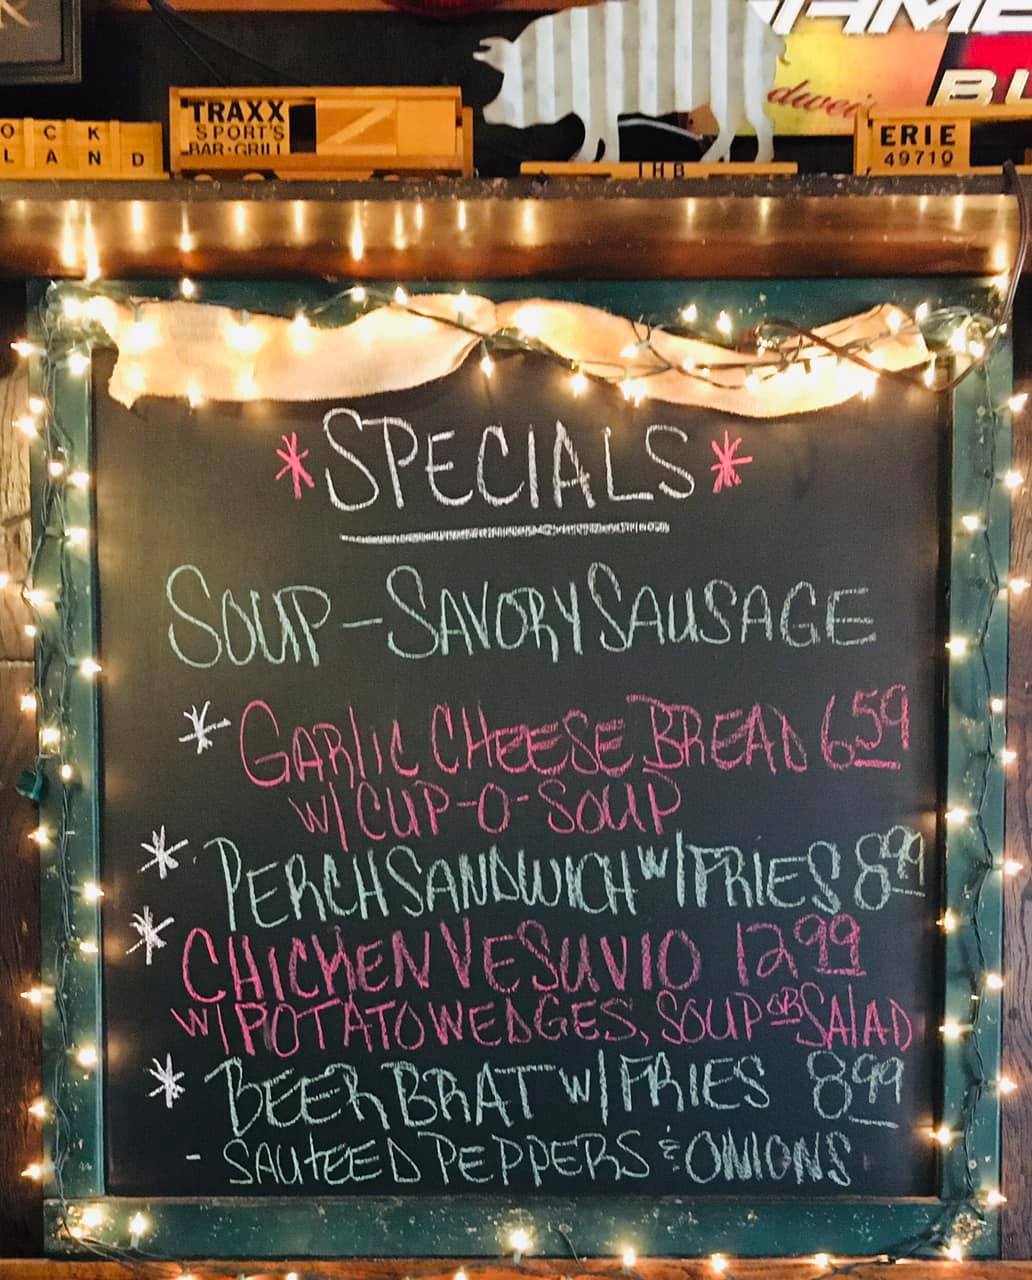 AME
BU
dwei
TRAXX
SPORT'S
BAR·GRILL
OCK
LAND
IHB
ERIE
49710
*SPECIALS*
SOUP - SAVORY SAUSAGE
* GARLIC CHEESE BREAD 6.59
W/ CUP-O-SOUP
* PERCH SANDWICH W/ FRIES 8.99
* CHICKEN VESUVIO 12.99
W/ POTATO WEDGES, SOUP OR SALAD
* BEER BRAT W/ FRIES 8.99
- SAUTEED PEPPERS & ONIONS